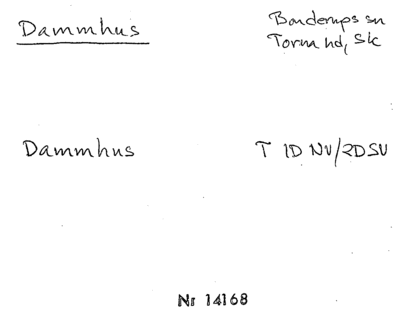 Dammhus
Bonderups sn
Torna hd, Sk
Dammhus T 1D NV/2D SV
Nr 14168